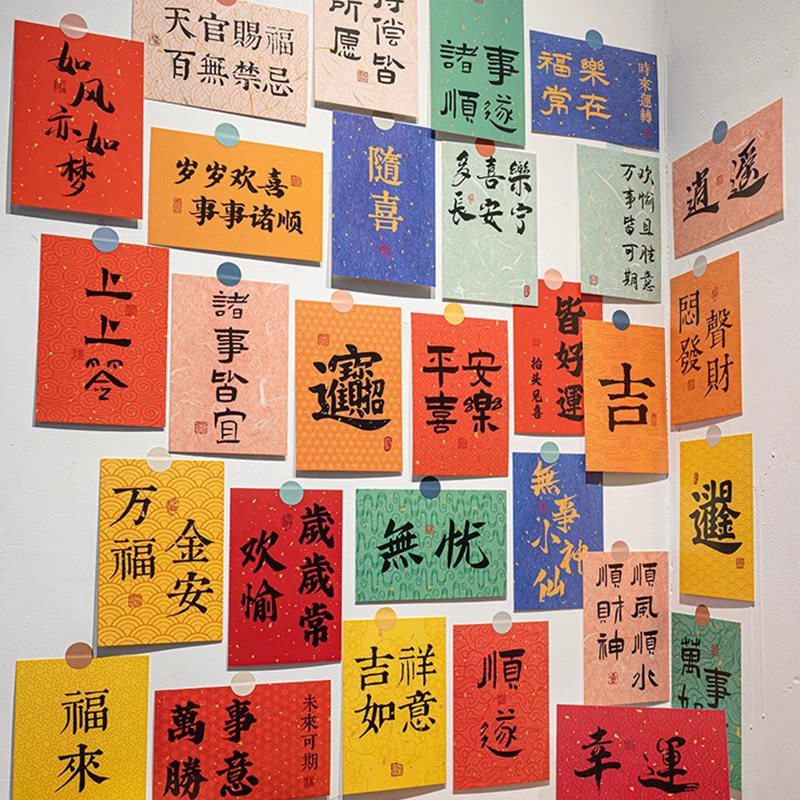 如风亦如梦
天官賜福
百無禁忌
偿皆
所愿
諸事
順遂
福樂
常在
時來運轉
岁岁欢喜
事事诸顺
隨喜
多喜樂
長安宁
欢愉且胜意
万事皆可期
逍遥
上上签
諸事皆宜
招财進寳
平安
喜樂
皆好運
抬头见喜
吉
悶聲
發財
日進斗金
万福
金安
歲歲常
欢愉
無忧
無事
小神仙
順風順水
順財神
萬事
如
福來
萬事
勝意
未來可期
吉祥
如意
順遂
幸運